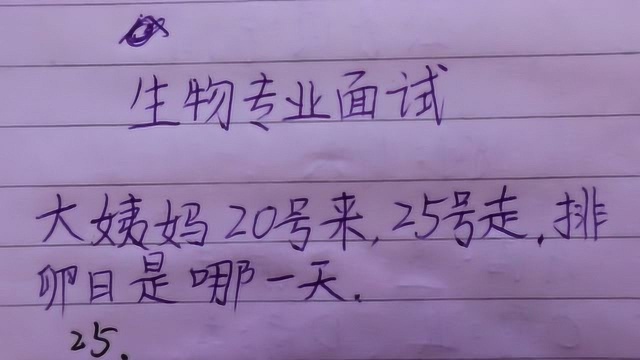 生物专业面试
大姨妈20号来,25号走,排
卵日是哪一天.
25.